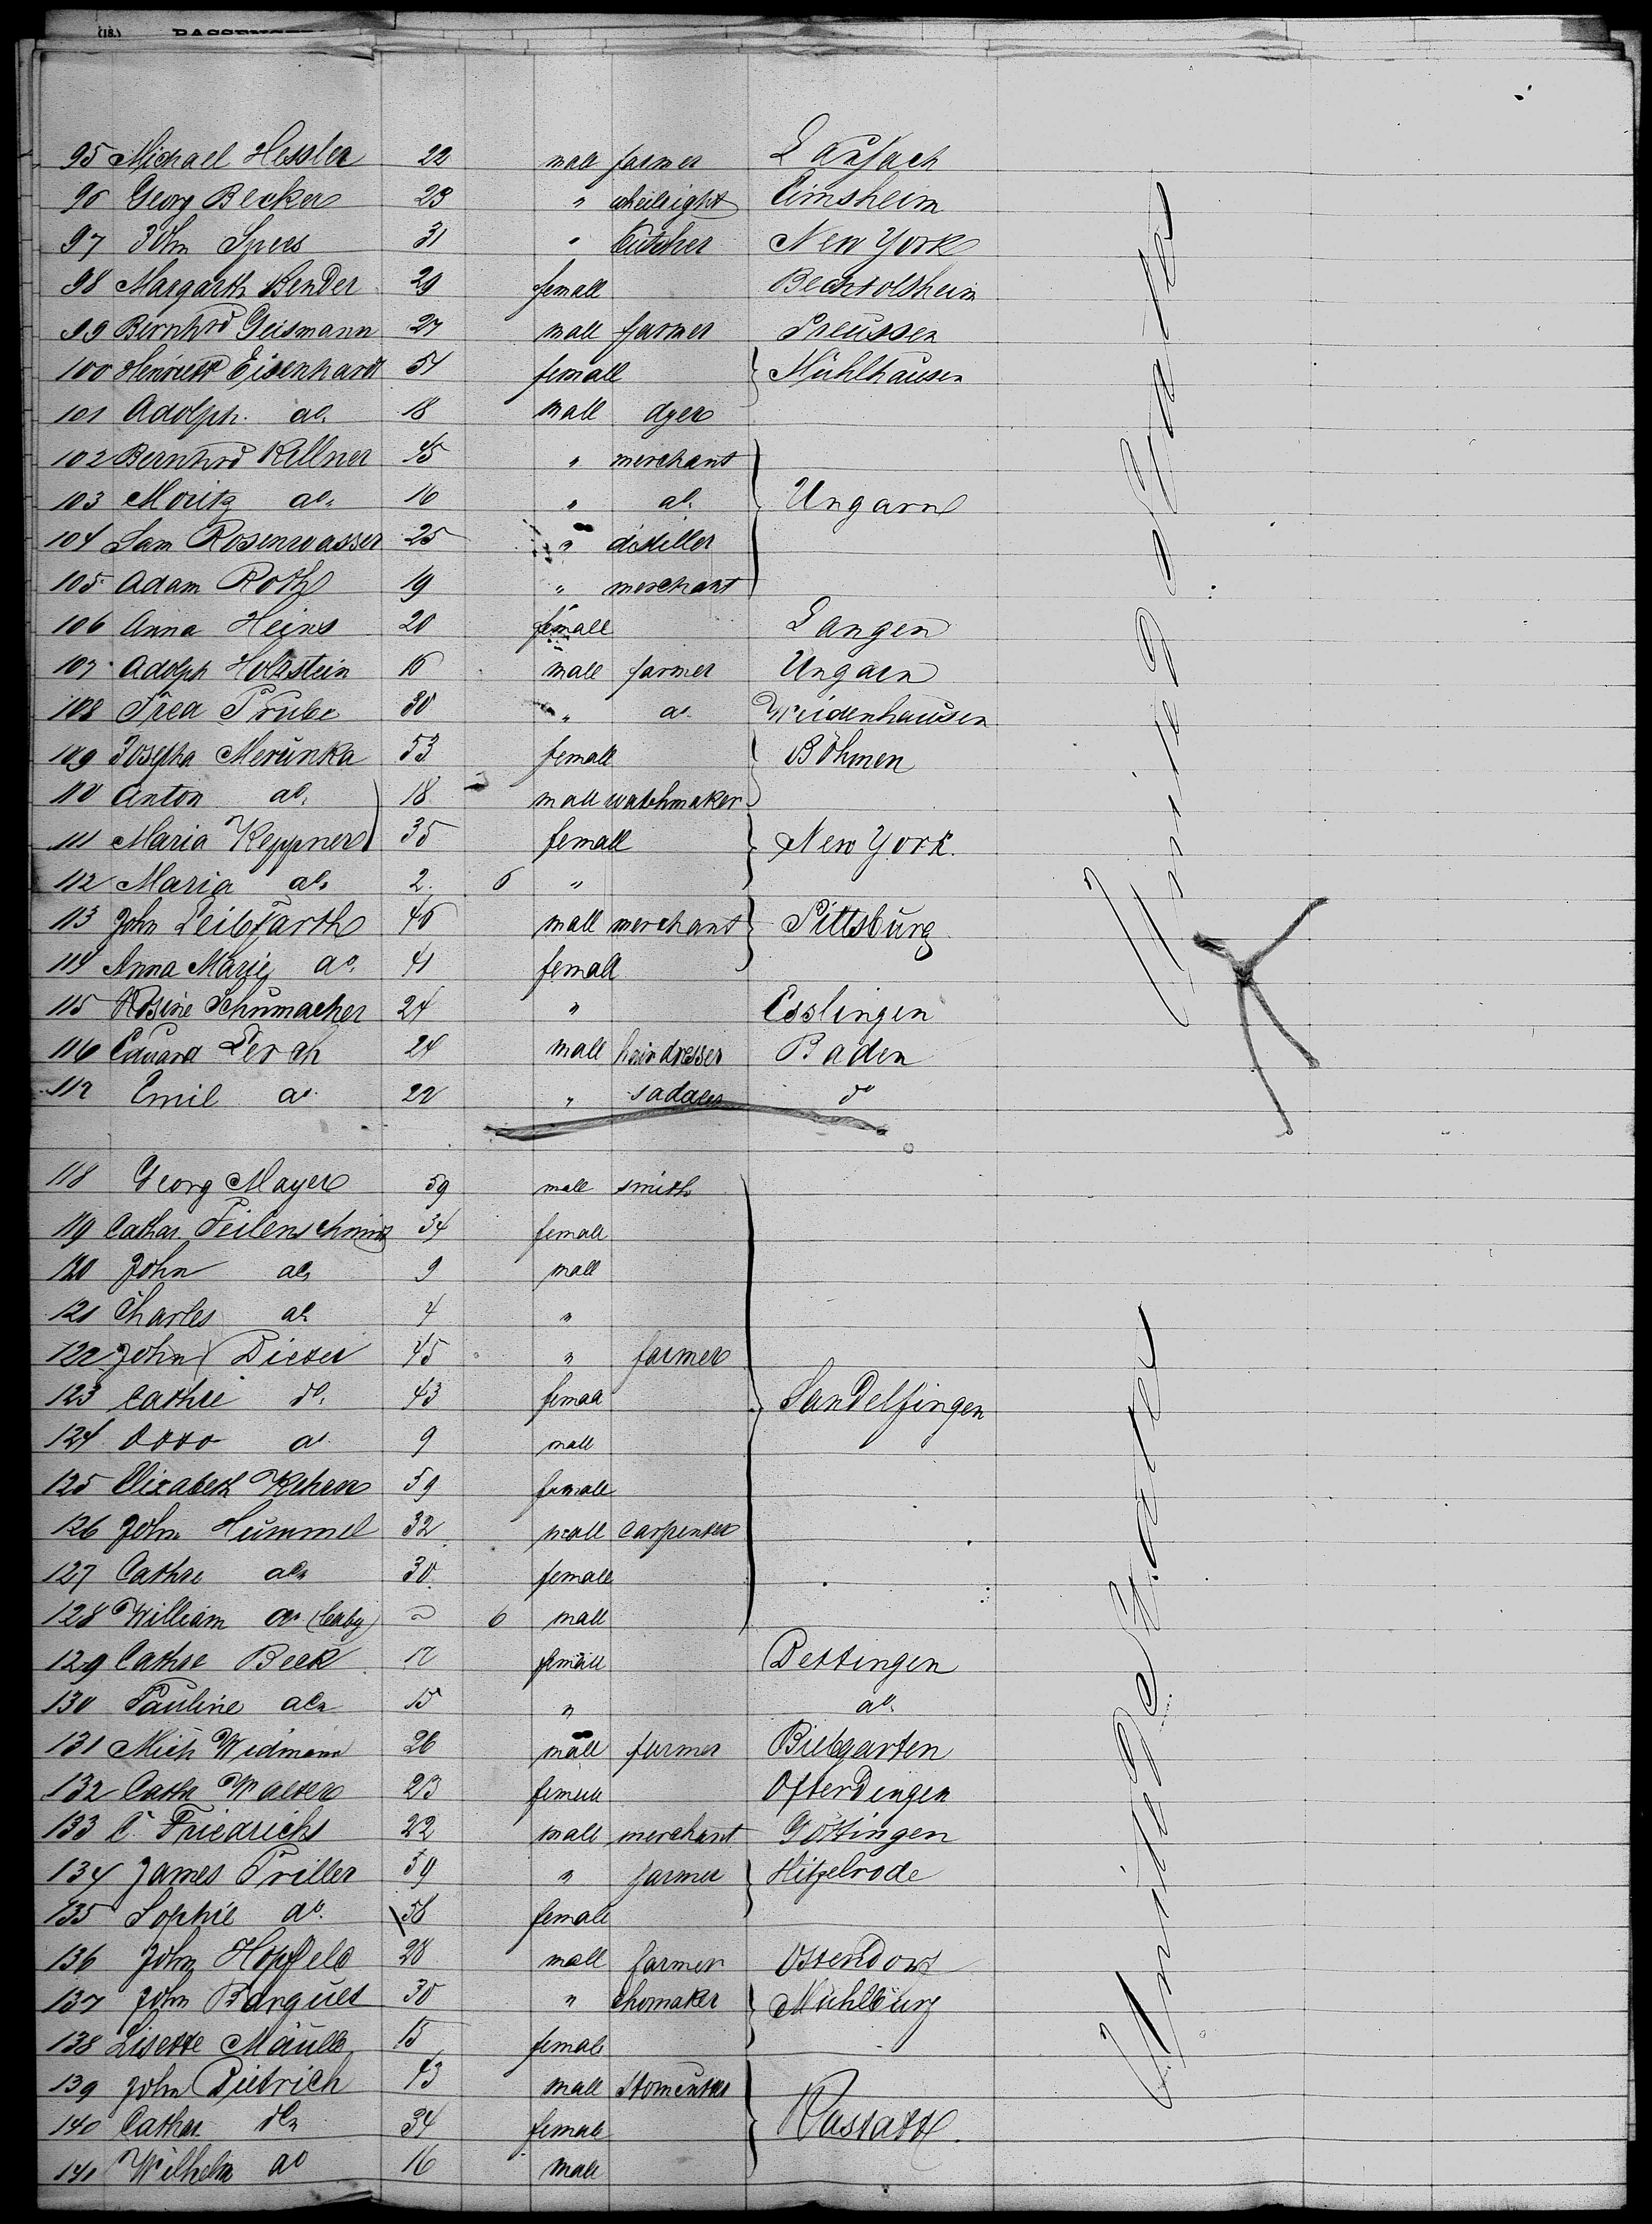 (18.) PASSENGER
95 Michael Hessler 22 mall farmer Laufach
96 Georg Becker 23 " wheilright Eimsheim
97 John Spies 31 " butcher New York
98 Margarth Bender 29 femall Bechtolsheim
99 Bernhrd Geismann 27 mall farmer Preussen
100 Henriett Eisenhardt 54 femall Mühlhausen
101 Adolph do. 18 mall dyer
102 Bernhrd Kellner 45 " merchant
103 Moritz do. 16 " do. Ungarn
104 Sam Rosenwasser 25 " distiller
105 Adam Roth 19 " merchant
106 Anna Heins 20 femall Langen
107 Adolph Holzstein 16 mall farmer Ungarn
108 Fred Trube 30 " do. Weidenhausen
109 Josepha Merunka 53 femall Böhmen
110 Anton do. 18 mall watchmaker
111 Maria Keppner 35 femall New York.
112 Maria do. 2. 6 "
113 John Leibfarth 46 mall merchant Pittsburg
114 Anna Marie do. 41 femall
115 Rosine Schumacher 24 " Esslingen
116 Eduard Lerch 24 mall hairdresser Baden
117 Emil do. 22 " sadaler do
United States
118 Georg Mayer 59 mall smith
119 Cathar. Feilenschmidt 34 femall
120 John do. 9 mall
121 Charles do. 4 "
122 John Dieter 45 " farmer
123 Cathre do. 43 femall Sandelfingen
124 Otto do. 9 mall
125 Elizabeth Kehrer 59 female
126 John Hummel 32 mall carpenter
127 Cathre do. 30 female
128 William do. (baby) 6 mall
129 Cathre Beck 17 female Dettingen
130 Pauline do. 15 " do.
131 Mich Widmann 26 mall farmer
132 Cathr Walter 23 female Ofterdingen
133 C. Friedrichs 22 mall merchant Göttingen
134 James Triller 59 " farmer Hitzelrode
135 Sophie do. 58 female
136 John Hopfeld 28 mall farmer Ostendorf
137 John Barquet 30 " shomaker Mühlburg
138 Lisette Mäulle 15 female
139 John Dietrich 43 mall Rastatt.
140 Cathar. do. 34 female
141 Wilhelm do 16 male
United States